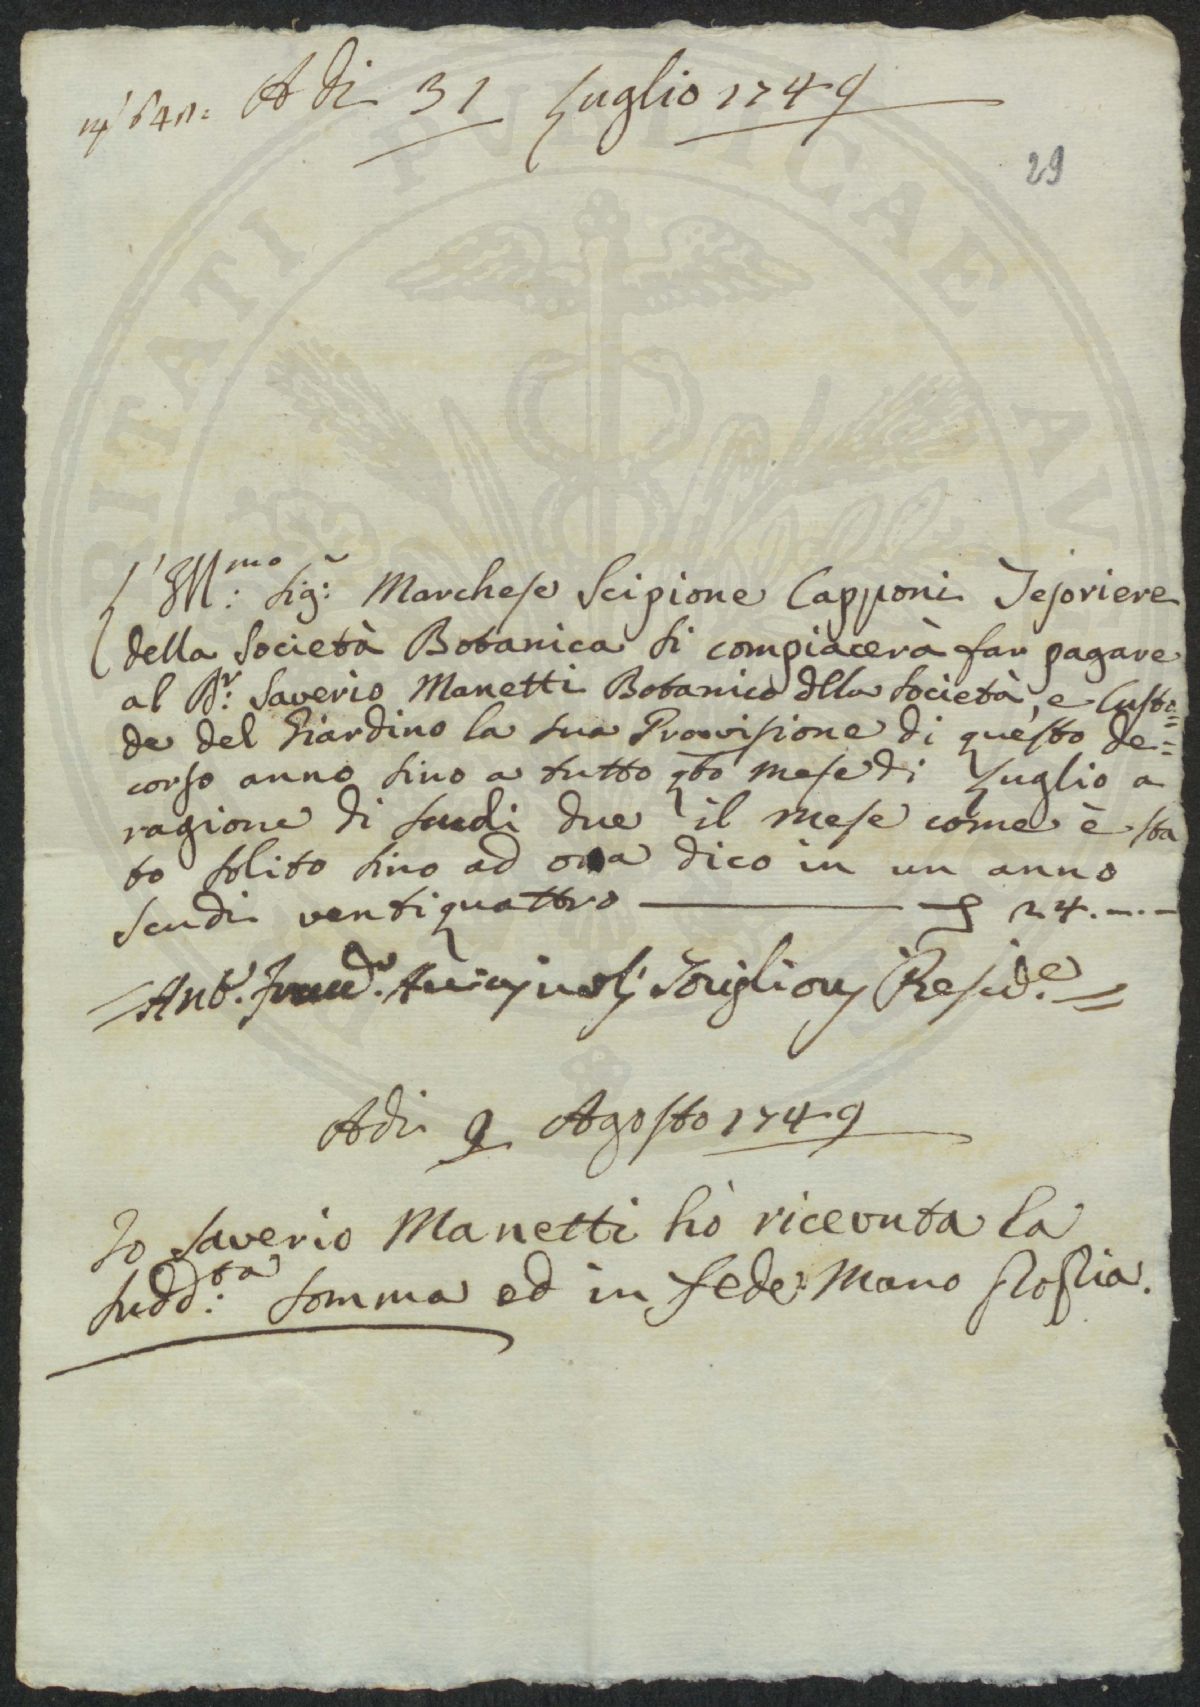 Adi 31 Luglio 1749
29
L'Ill.mo Sig.r Marchese Scipione Capponi Tesoriere
della Società Botanica si compiacerà far pagare
al Dr. Saverio Manetti Botanico dlla Società, e Custo=
de del Giardino la sua Provvisione di questo de=
corso anno sino a tutto qto mese di Luglio a
ragione di scudi due il mese come è sta
to solito sino ad ora dico in un anno
scudi ventiquattro 24.-.-
Ant. Preside
Adi 9 Agosto 1749
Io Saverio Manetti hò ricevuta la
sudd.ta somma ed in fede Mano propria.